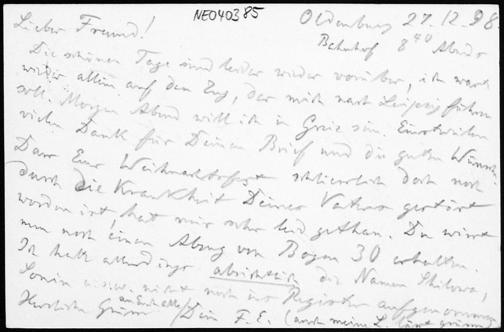 NE040385
Oldenburg 27.12.98.
Bahnhof 8 40 Abds
Lieber Freund!
Die schönen Tage sind leider wieder vorüber, ich warte
wieder allein auf den Zug, der mich nach Leipzig führen
soll. Morgen Abend will ich in Greiz sein. Einstweilen
vielen Dank für Deinen Brief und die guten Wünsche
Dass Euer Weihnachtsfest schliesslich doch noch
durch die Krankheit Deines Vaters gestört
worden ist, hat mir sehr leid gethan. Du wirst
nun noch einen Abzug von Bogen 30 erhalten.
Ich habe allerdings absichtlich die Namen
Sonin u.s.w. nicht noch ins Register aufgenommen
Herzliche Grüsse an Euch alle! Dein F. E. (auch meine